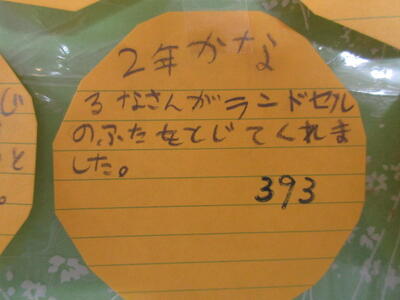 2年かな
るなさんがランドセル
のふたをとじてくれま
した。
393
じ
と
。